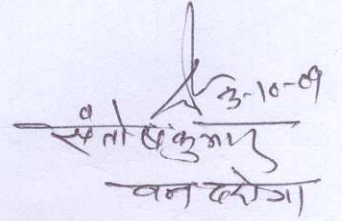 3-10-09
संतोष कुमार
वन दरोगा